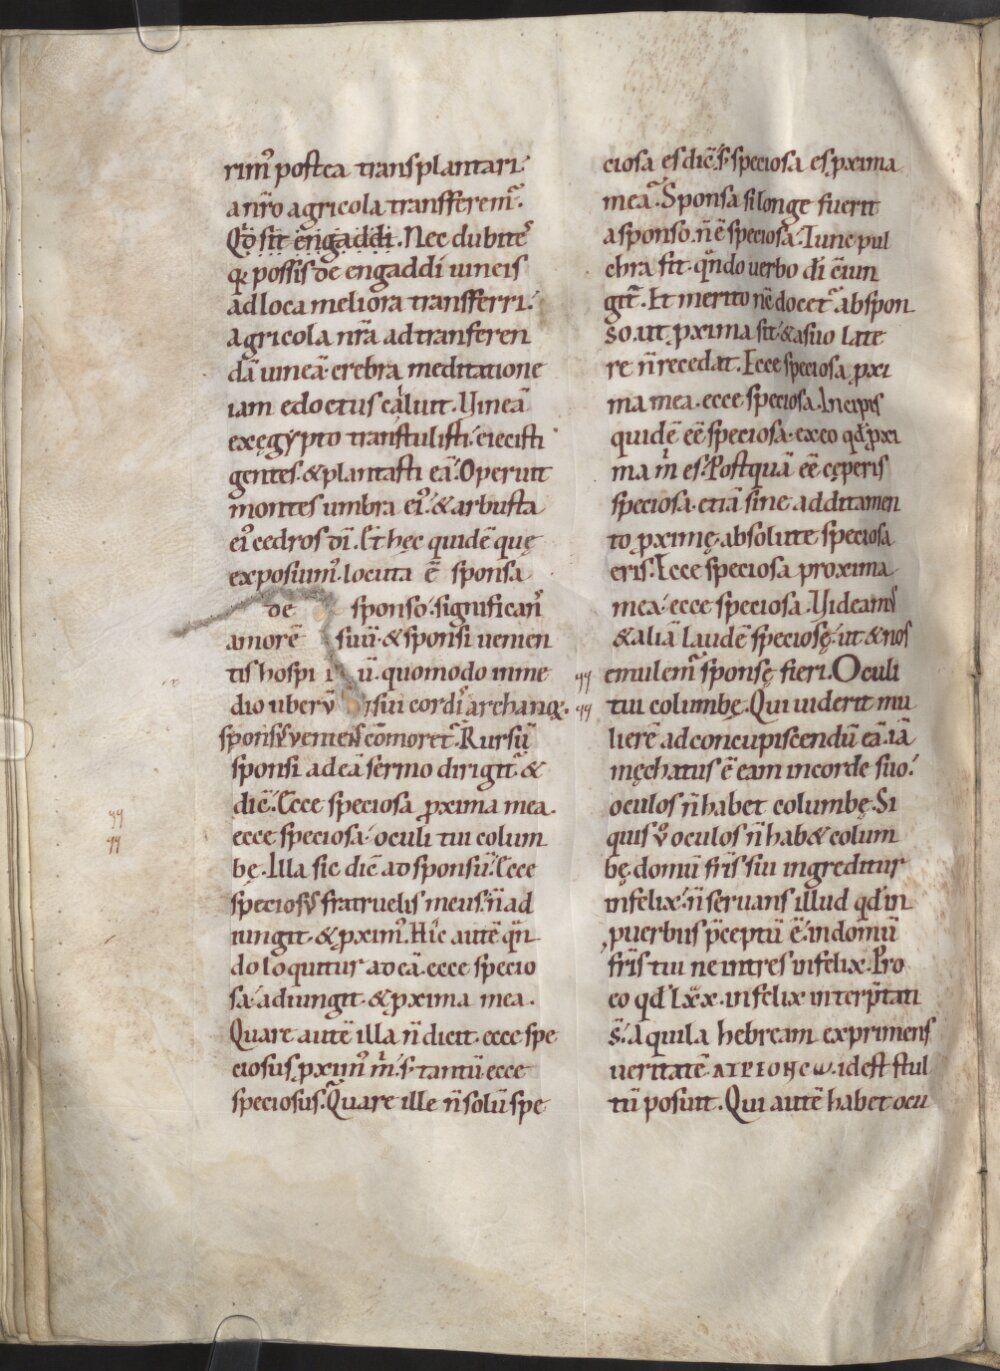 rim᷒ postea transplantari
a nr̄o agricola transferem᷒.
Qđ sit engaddi. Nec dubites
qꝫ possis de engaddi uineis
ad loca meliora transferri.
agricola nr̄a ad tranferen
dā uineā crebra meditatione
iam edoctus caluit. Vineā
ex ęgypto transtulisti. eiecisti
gentes. & plantasti eā. Operuit
montes umbra ei᷒. & arbusta
ei᷒ cedros dī. Et hęc quidē quę
exposuim᷒. locuta ē sponsa
de sponso. significans
amorē suū. & sponsi uenien
tis hospi iū. quomodo inme
dio uberū sui cordis archanoꝝ.
spons᷒ ueniens cōmoret᷒. Rursū
sponsi ad eā sermo dirigit᷒ &
dic̄. Ecce speciosa ꝓxima mea.
ecce speciosa. oculi tui colum
bę. Illa sic dic̄ ad sponsū. Ecce
specios᷒ fratruelis meus. n̄ ad
iungit. & ꝓxim᷒. Hic autē qn̄
do loquitur ad eā. ecce specio
sa. adiungit. & ꝓxima mea.
Quare autē illa n̄ dicit. ecce spe
ciosus ꝓxim᷒ m̄s. s; tantū ecce
speciosus. Quare ille n̄ solū spe
ciosa es dic̄. s; speciosa es ꝓxima
mea. Sponsa si longe fuerit
a sponso. n̄ ē speciosa. Tunc pul
chra fit. qn̄do uerbo di ēiun
git᷒. Et merito nc̄ docet᷒ ab spon
so. ut ꝓxima sit. & a suo late
re n̄ recedat. Ecce speciosa ꝓxi
ma mea. ecce speciosa. Incipis
quidē eē speciosa. ex eo qđ ꝓxi
ma m̄ es. Postquā eē cęperis
speciosa. etiā sine additamen
to ꝓximę. absolute speciosa
eris. Ecce speciosa proxima
mea. ecce speciosa. Videam᷒
& aliā laudē speciosę. ut & nos
emulem᷒ sponsę fieri. Oculi
tui columbę. Qui uiderit mu
lierē ad concupiscendū eā. iā
męchatus ē eam in corde suo.
oculos n̄ habet columbę. Si
quis ů oculos n̄ hab& colum
bę. domū fr̄is sui ingreditur
infelix. n̄ seruans illud qđ in
ꝓuerbiis p̄ceptū ē. in domū
fr̄is tui ne intres infelix. Pro
eo qđ lxx. infelix interp̄tati
s̄. Aquila hebream exprimens
ueritatē ΑΙΡΙΟΝΕω. id est stul
tū posuit. Qui autē habet ocu